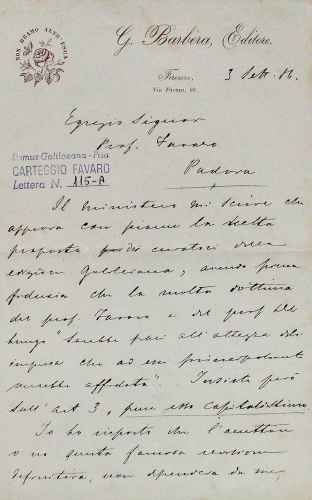 NON BRAMO ALTR'ESCA
G. Barbèra, Editore.
Firenze, 3 Sett. 86.
Via Faenza, 66.
Egregio Signor
Prof. Favaro
Padova
Domus Galilaeana - Pisa
CARTEGGIO FAVARO
Lettera N. 115-A
Il ministero mi scrive che
approva con piacere la scelta
proposta dei curatori della
edizione Galileiana, avendo piena
fiducia che la molta dottrina
del prof. Favaro e del prof. Del
Lungo "sarebbe pari all'altezza della
impresa che ad essi principalmente
verrebbe affidata". Insiste però
sull'art 3, pure esso capitalissimo
Io ho risposto che l'accettare
o no questa famosa
definitiva, non dipendeva da me,